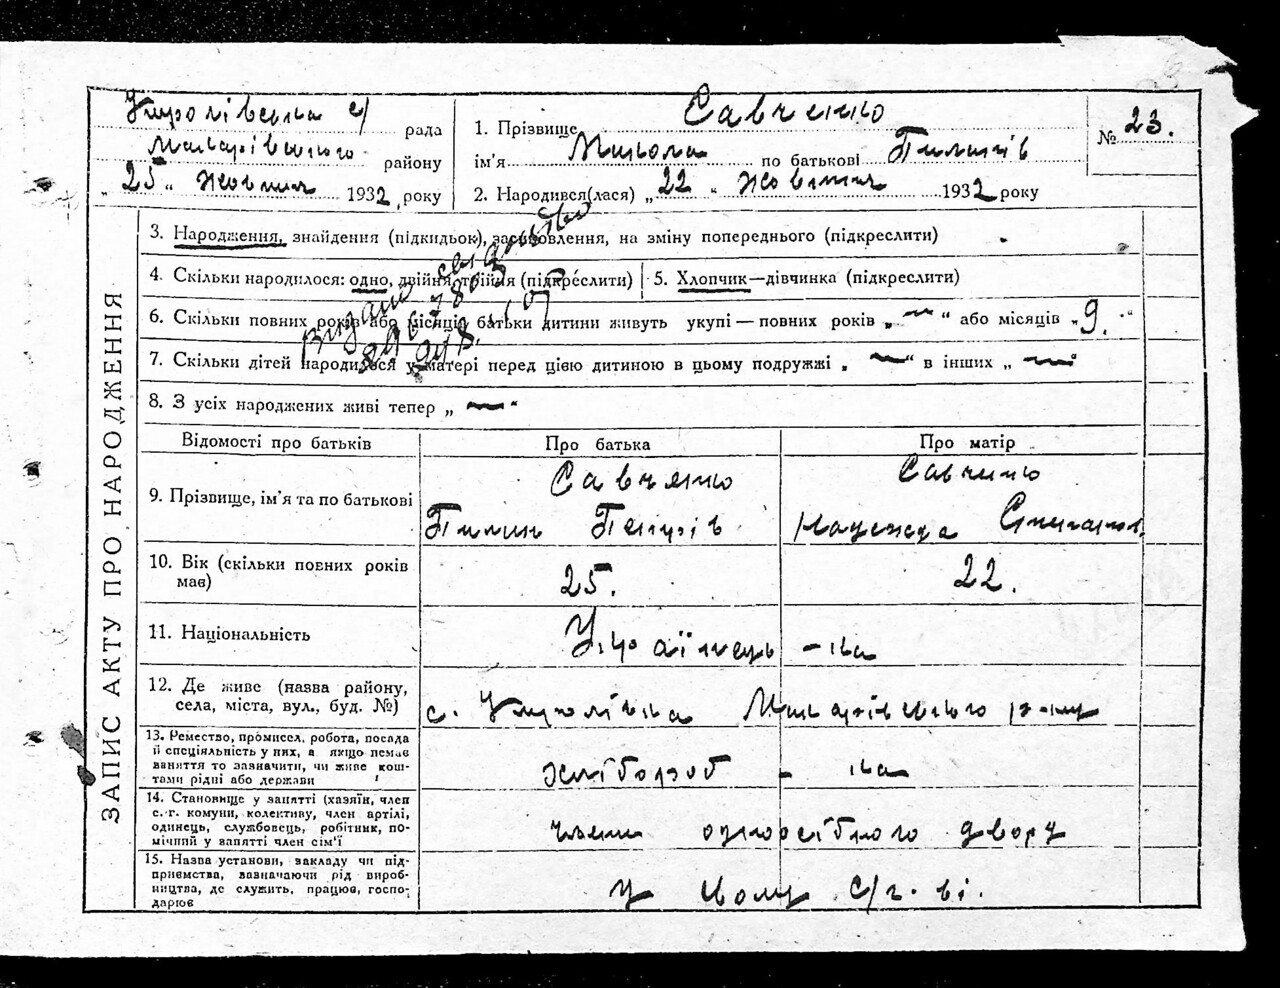 ЗАПИС АКТУ ПРО НАРОДЖЕННЯ
с/ рада
Макарівського району
„ 25 „ жовтня 1932 року
1. Прізвище Савченко
ім'я Микола по батькові Пилипів
2. Народився(лася) „ 22 „ жовтня 1932 року
№ 23.
3. Народження, знайдення (підкидьок), засиновлення, на зміну попереднього (підкреслити)
4. Скільки народилося: одно, двійня, трійня (підкреслити)
5. Хлопчик—дівчинка (підкреслити)
6. Скільки повних років або місяців батьки дитини живуть укупі — повних років „ — “ або місяців „ 9. “
7. Скільки дітей народилося у матері перед цією дитиною в цьому подружжі „ — “ в інших „ — “
8. З усіх народжених живі тепер „ — “
Видано свидоцтво
Відомості про батьків
Про батька
Про матір
9. Прізвище, ім'я та по батькові
Савченко
Пилип Петрів
Савченко
Надежда
10. Вік (скільки повних років має)
25.
22.
11. Національність
Українець - ка
12. Де живе (назва району,
села, міста, вул., буд. №)
с. Макарівського р-ну
13. Ремество, промисел, робота, посада
й спеціяльність у них, а якщо немає
заняття то зазначити, чи живе кош-
тами рідні або держави
хлібороб - ка
14. Становище у занятті (хазяїн, член
с.-г. комуни, колективу, член артілі,
одинець, службовець, робітник, по-
мічний у занятті член сім'ї
член одноосібного двору
15. Назва установи, закладу чи під-
приємства, зазначаючи рід вироб-
ництва, де служить, працює, госпо-
дарює
У свому с/г-ві.